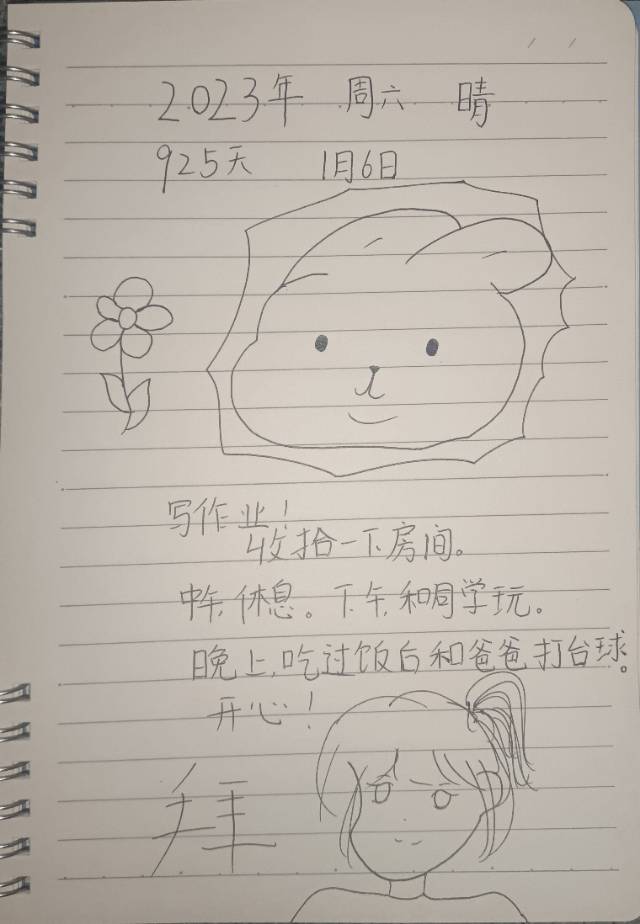 2023年 周六 晴
925天 1月6日
写作业！
收拾一下房间。
中午，休息。下午，和同学玩。
晚上，吃过饭后和爸爸打台球。
开心！
拜